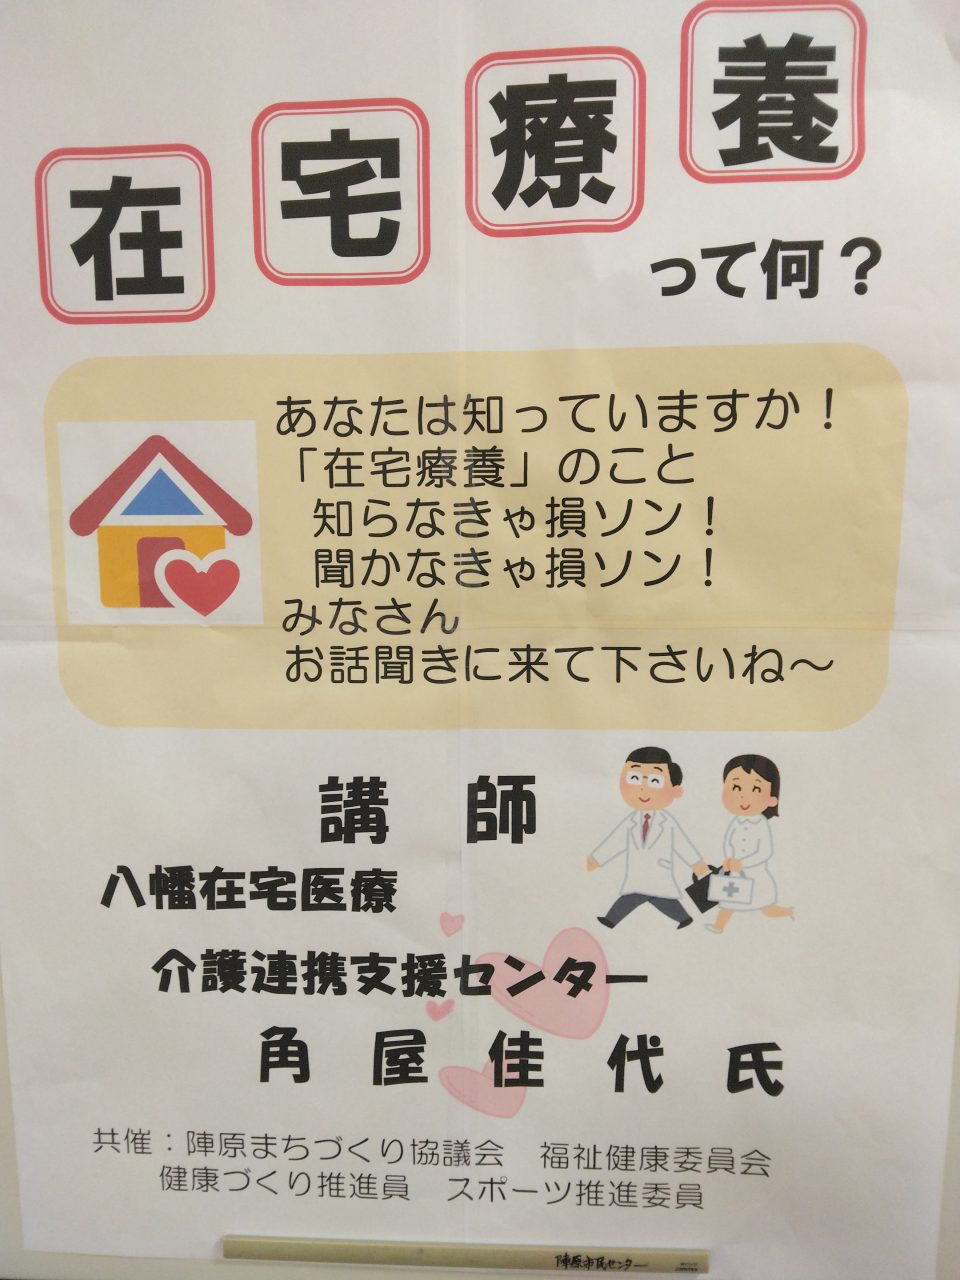 在宅療養
って何？
あなたは知っていますか！
「在宅療養」のこと
知らなきゃ損ソン！
聞かなきゃ損ソン！
みなさん
お話聞きに来て下さいね～
講 師
八幡在宅医療
介護連携支援センター
角 屋 佳 代 氏
共催：陣原まちづくり協議会　福祉健康委員会
健康づくり推進員　スポーツ推進委員
陣原市民センター